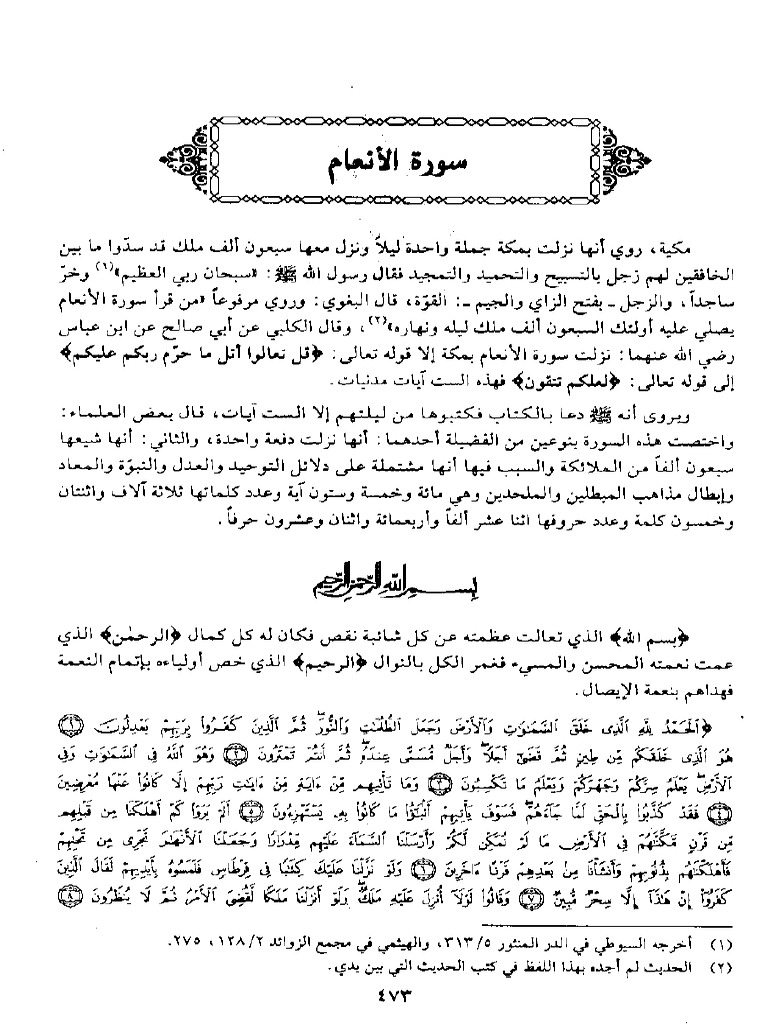 سورة الأنعام
مكية، روي أنها نزلت بمكة جملة واحدة ليلاً ونزل معها سبعون ألف ملك قد سدّوا ما بين
الخافقين لهم زجل بالتسبيح والتحميد والتمجيد فقال رسول الله ﷺ: «سبحان ربي العظيم»(١) وخرّ
ساجداً، والزجل ـ بفتح الزاي والجيم ـ: القوّة، قال البغوي: وروي مرفوعاً «من قرأ سورة الأنعام
يصلي عليه أولئك السبعون ألف ملك ليله ونهاره»(٢)، وقال الكلبي عن أبي صالح عن ابن عباس
رضي الله عنهما: نزلت سورة الأنعام بمكة إلا قوله تعالى: ﴿قل تعالوا أتل ما حرّم ربكم عليكم﴾
إلى قوله تعالى: ﴿لعلكم تتقون﴾ فهذه الست آيات مدنيات.
ويروى أنه ﷺ دعا بالكتاب فكتبوها من ليلتهم إلا الست آيات، قال بعض العلماء:
واختصت هذه السورة بنوعين من الفضيلة أحدهما: أنها نزلت دفعة واحدة، والثاني: أنها شيعها
سبعون ألفاً من الملائكة والسبب فيها أنها مشتملة على دلائل التوحيد والعدل والنبوّة والمعاد
وإبطال مذاهب المبطلين والملحدين وهي مائة وخمسة وستون آية وعدد كلماتها ثلاثة آلاف واثنتان
وخمسون كلمة وعدد حروفها اثنا عشر ألفاً وأربعمائة واثنان وعشرون حرفاً.
بسم الله الرحمن الرحيم
﴿بسم الله﴾ الذي تعالت عظمته عن كل شائبة نقص فكان له كل كمال ﴿الرحمٰن﴾ الذي
عمت نعمته المحسن والمسيء فغمر الكل بالنوال ﴿الرحيم﴾ الذي خص أولياءه بإتمام النعمة
فهداهم بنعمة الإيصال.
﴿اَلْحَمْدُ لِلَّهِ الَّذِي خَلَقَ السَّمَاوَاتِ وَالْأَرْضَ وَجَعَلَ الظُّلُمَاتِ وَالنُّورَ ثُمَّ الَّذِينَ كَفَرُوا بِرَبِّهِمْ يَعْدِلُونَ ١
هُوَ الَّذِي خَلَقَكُمْ مِنْ طِينٍ ثُمَّ قَضَىٰ أَجَلًا وَأَجَلٌ مُسَمًّى عِنْدَهُ ثُمَّ أَنْتُمْ تَمْتَرُونَ ٢ وَهُوَ اللَّهُ فِي السَّمَاوَاتِ وَفِي
الْأَرْضِ يَعْلَمُ سِرَّكُمْ وَجَهْرَكُمْ وَيَعْلَمُ مَا تَكْسِبُونَ ٣ وَمَا تَأْتِيهِمْ مِنْ ءَايَةٍ مِنْ ءَايَاتِ رَبِّهِمْ إِلَّا كَانُوا عَنْهَا مُعْرِضِينَ
٤ فَقَدْ كَذَّبُوا بِالْحَقِّ لَمَّا جَاءَهُمْ فَسَوْفَ يَأْتِيهِمْ أَنْبَاءُ مَا كَانُوا بِهِ يَسْتَهْزِءُونَ ٥ أَلَمْ يَرَوْا كَمْ أَهْلَكْنَا مِنْ قَبْلِهِمْ
مِنْ قَرْنٍ مَكَّنَّاهُمْ فِي الْأَرْضِ مَا لَمْ نُمَكِّنْ لَكُمْ وَأَرْسَلْنَا السَّمَاءَ عَلَيْهِمْ مِدْرَارًا وَجَعَلْنَا الْأَنْهَارَ تَجْرِي مِنْ تَحْتِهِمْ
فَأَهْلَكْنَاهُمْ بِذُنُوبِهِمْ وَأَنْشَأْنَا مِنْ بَعْدِهِمْ قَرْنًا ءَاخَرِينَ ٦ وَلَوْ نَزَّلْنَا عَلَيْكَ كِتَابًا فِي قِرْطَاسٍ فَلَمَسُوهُ بِأَيْدِيهِمْ لَقَالَ الَّذِينَ
كَفَرُوا إِنْ هَذَا إِلَّا سِحْرٌ مُبِينٌ ٧ وَقَالُوا لَوْلَا أُنْزِلَ عَلَيْهِ مَلَكٌ وَلَوْ أَنْزَلْنَا مَلَكًا لَقُضِيَ الْأَمْرُ ثُمَّ لَا يُنْظَرُونَ ٨
(١) أخرجه السيوطي في الدر المنثور ٣١٣/٥، والهيثمي في مجمع الزوائد ١٢٨/٢، ٢٧٥.
(٢) الحديث لم أجده بهذا اللفظ في كتب الحديث التي بين يدي.
٤٧٣